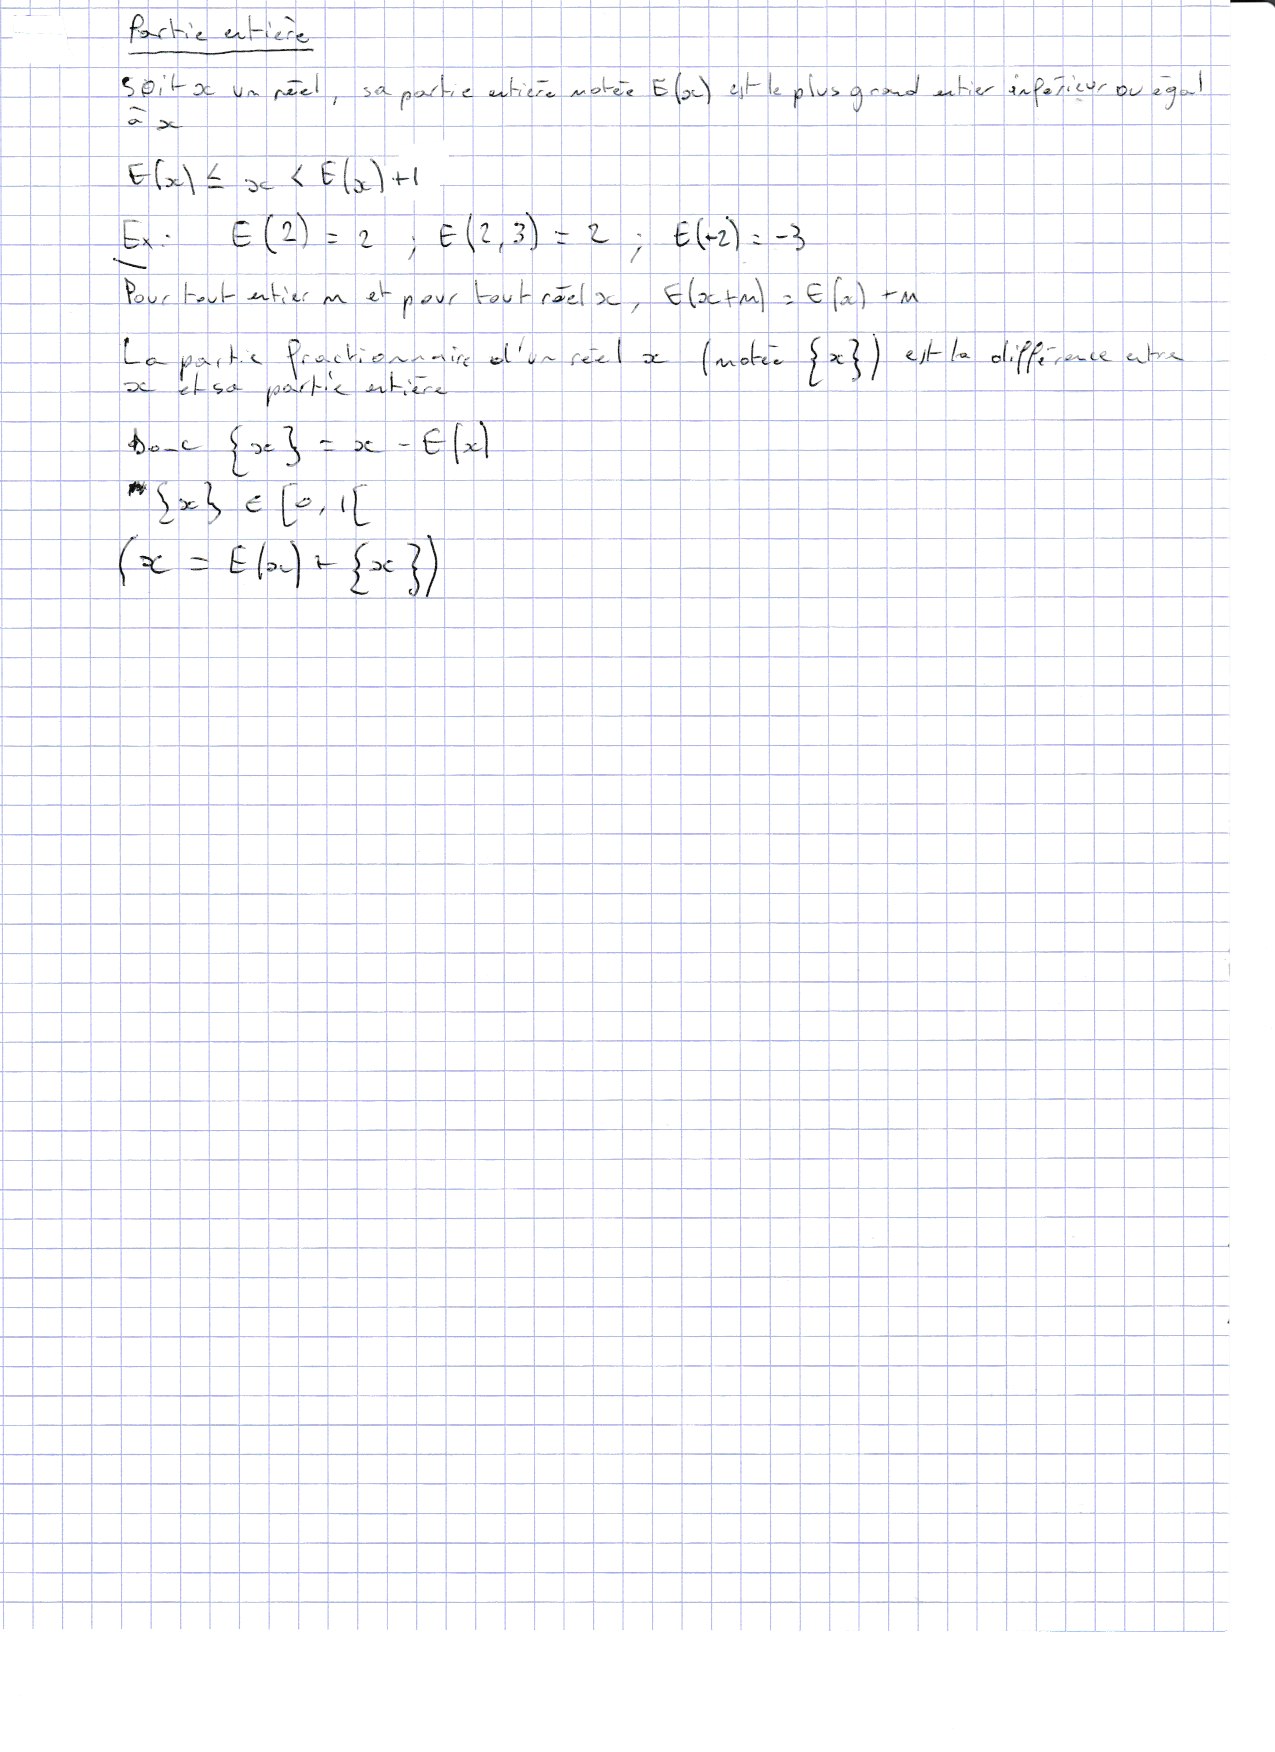 Partie entière
Soit x un réel, sa partie entière notée E(x) est le plus grand entier inférieur ou égal
à x
E(x) ≤ x < E(x)+1
Ex: E(2) = 2 ; E(2,3) = 2 ; E(-2) = -3
Pour tout entier n et pour tout réel x, E(x+n) = E(x) + n
La partie fractionnaire d'un réel x (notée {x}) est la différence entre
x et sa partie entière
Donc {x} = x - E(x)
{x} ∈ [0, 1[
(x = E(x) + {x})